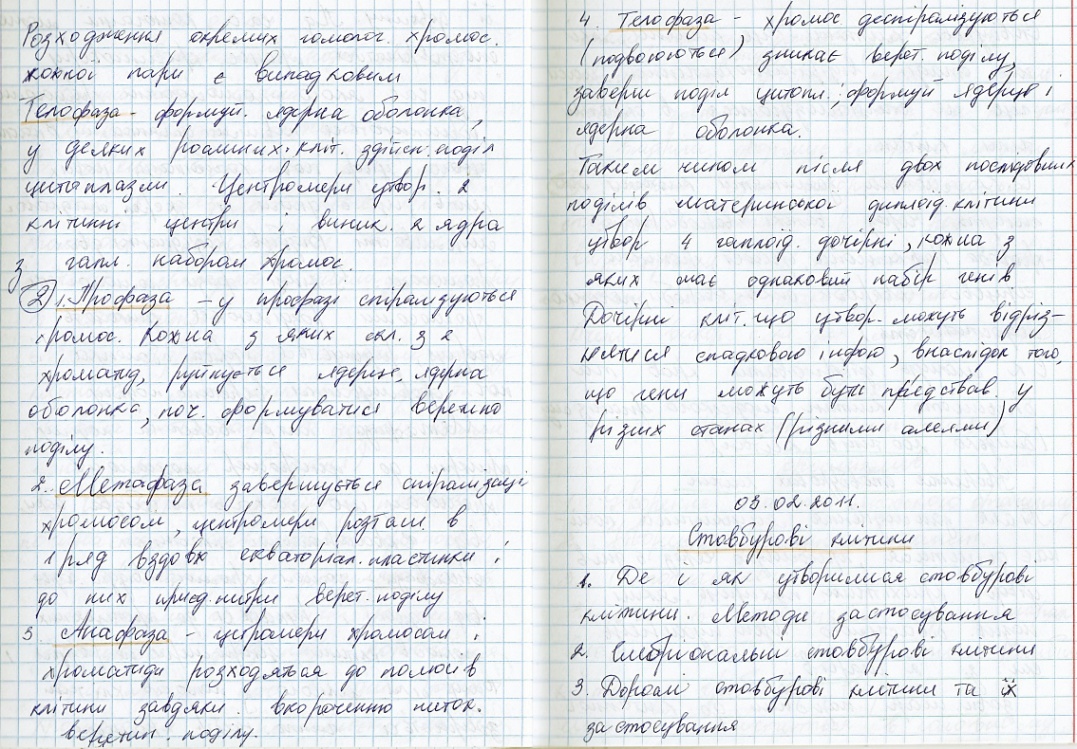 Розходження окремих гомолог. хромос.
кожної пари є випадковим
Телофаза - формуй. ядерна оболонка,
у деяких рослинних кліт. здійсн. поділ
цитоплазми. Центромери утвор. 2
клітинні центри і виник. 2 ядра
з гапл. набором хромос.
2) 1. Профаза – у профазі спіралізуються
хромос. Кожна з яких скл. з 2
хроматид, руйнується ядерце, ядерна
оболонка, поч. формуватися веретено
поділу.
2. Метафаза завершується спіралізація
хромосом, центромери розташ. в
1 ряд вздовж екваторіал. пластинки і
до них приєд. нитки верет. поділу
3. Анафаза - центромери хромосом і
хроматиди розходяться до полюсів
клітини завдяки вкороченню ниток.
веретен. поділу.
4. Телофаза - хромос деспіралізуються
(подвоюються) зникає верет. поділу,
заверш поділ цитопл.; формуй ядерце і
ядерна оболонка.
Таким чином після двох послідовних
поділів материнської диплоїд. клітини
утвор 4 гаплоїд. дочірні, кожна з
яких має однаковий набір генів.
Дочірні кліт. що утвор. можуть відріз-
нятися спадковою інфою, внаслідок того,
що гени можуть бути представ. у
різних станах (різними алелями)
03.02.2011.
Стовбурові клітини
1. Де і як утворилися стовбурові
клітини. Методи застосування
2. Ембріональні стовбурові клітини
3. Дорослі стовбурові клітини та їх
застосування